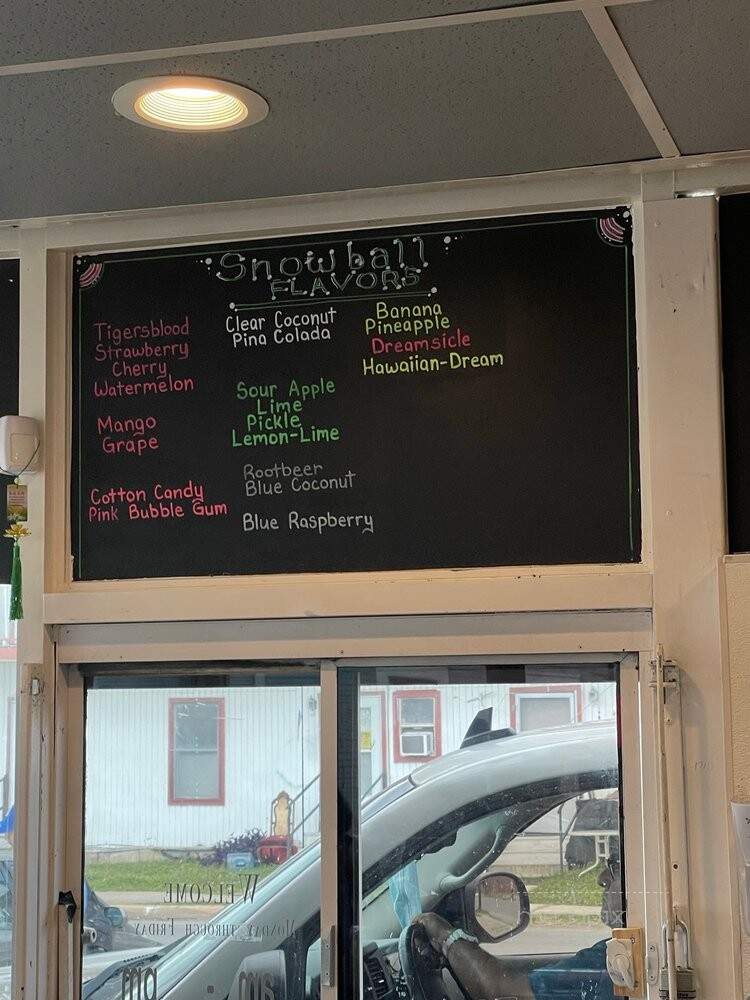 Snowball
FLAVORS
Tigersblood
Strawberry
Cherry
Watermelon
Mango
Grape
Cotton Candy
Pink Bubble Gum
Clear Coconut
Pina Colada
Sour Apple
Lime
Pickle
Lemon-Lime
Rootbeer
Blue Coconut
Blue Raspberry
Banana
Pineapple
Dreamsicle
Hawaiian-Dream
WELCOME
MONDAY THROUGH FRIDAY
am
pm